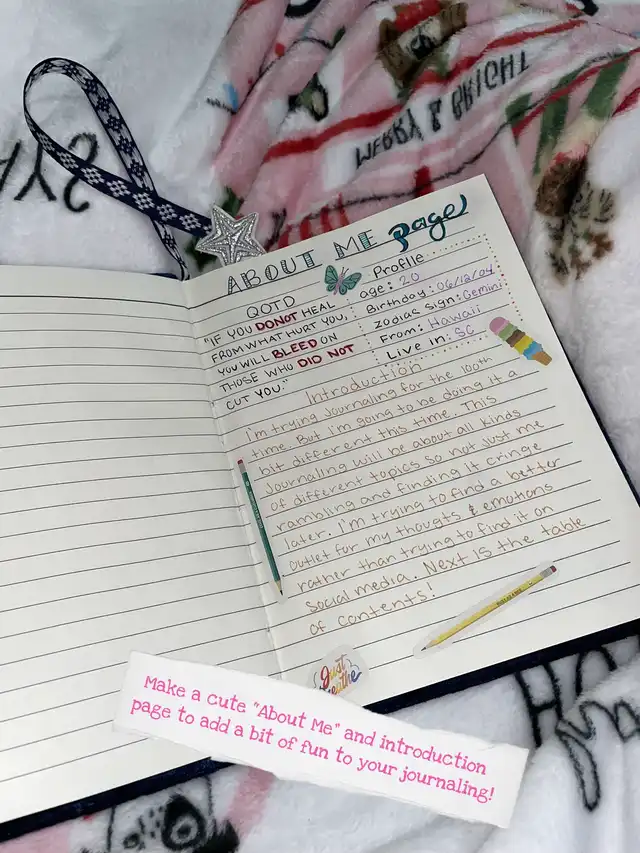 MERRY & BRIGHT
ABOUT ME page
QOTD
"IF YOU DO NOT HEAL
FROM WHAT HURT YOU,
YOU WILL BLEED ON
THOSE WHO DID NOT
CUT YOU."
Profile
age: 20
Birthday: 06/12/04
Zodias Sign: Gemini
From: Hawaii
Live in: SC
Introduction
I'm trying journaling for the 100th
time. But I'm going to be doing it a
bit different this time. This
Journaling will be about all kinds
of different topics so not just me
rambling and finding it cringe
later. I'm trying to find a better
outlet for my thougts & emotions
rather than trying to find it on
social media. Next is the table
of contents!
Just
breathe
Make a cute "About Me" and introduction
page to add a bit of fun to your journaling!